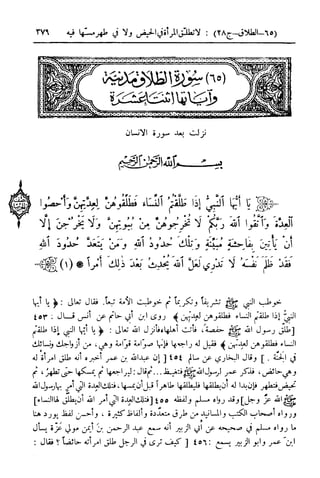 (٦٥-الطلاق-ج٢٨) : لا تطلق المرأة في الحيض ولا في طهر مسّها فيه ٣٧٦
(٦٥) سورة الطلاق مدنية
وآياتها اثنتا عشرة
نزلت بعد سورة الانسان
بسم الله الرحمن الرحيم
يَا أَيُّهَا النَّبِيُّ إِذَا طَلَّقْتُمُ النِّسَاءَ فَطَلِّقُوهُنَّ لِعِدَّتِهِنَّ وَأَحْصُوا
الْعِدَّةَ وَاتَّقُوا اللهَ رَبَّكُمْ لَا تُخْرِجُوهُنَّ مِنْ بُيُوتِهِنَّ وَلَا يَخْرُجْنَ إِلَّا
أَنْ يَأْتِينَ بِفَاحِشَةٍ مُبَيِّنَةٍ وَتِلْكَ حُدُودُ اللهِ وَمَنْ يَتَعَدَّ حُدُودَ اللهِ
فَقَدْ ظَلَمَ نَفْسَهُ لَا تَدْرِي لَعَلَّ اللهَ يُحْدِثُ بَعْدَ ذَلِكَ أَمْراً (١)
خوطب النبي ﷺ تشريفاً وتكريماً ثم خوطبت الأمة تبعاً. فقال تعالى : ﴿ يا أيها
النبي إذا طلقتم النساء فطلقوهن لعدتهن ﴾ روى ابن أبي حاتم عن أنس قـال : ٤٥٣
[طلق رسول الله ﷺ حفصة، فأتت أهلها، فأنزل الله تعالى : ﴿ يا أيها النبي إذا طلقتم
النساء فطلقوهن لعدتهن ﴾ فقيل له راجعها فإنها صوامة قوامة وهي، من أزواجك ونسائك
في الجنة.] وقال البخاري عن سالم ٤٥٤ [ إن عبدالله بن عمر أخبره أنه طلق امرأة له
وهي حائض، فذكر عمر لرسول الله ﷺ فتغيظ...ثم قال : ليراجعها ثم يمسكها حتى تطهر، ثم
تحيض فتطهر فإن بدا له أن يطلقها فليطلقها طاهراً قبل أن يمسها، فتلك العدة التي أمر بها رسول الله
الله عز وجل] وقد رواه مسلم ولفظه ٤٥٥ [فتلك العدة التي أمر الله أن يطلق لها النساء]
ورواه أصحاب الكتب والمسانيد من طرق متعددة وألفاظ كثيرة ، وأحسن لفظ يورد هنا
ما رواه مسلم في صحيحه عن أبي الزبير أنه سمع عبد الرحمن بن أيمن مولى عزة يسأل
ابن عمر وابو الزبير يسمع : ٤٥٦ [ كيف ترى في الرجل طلق امرأته حائضاً ؟ فقال :